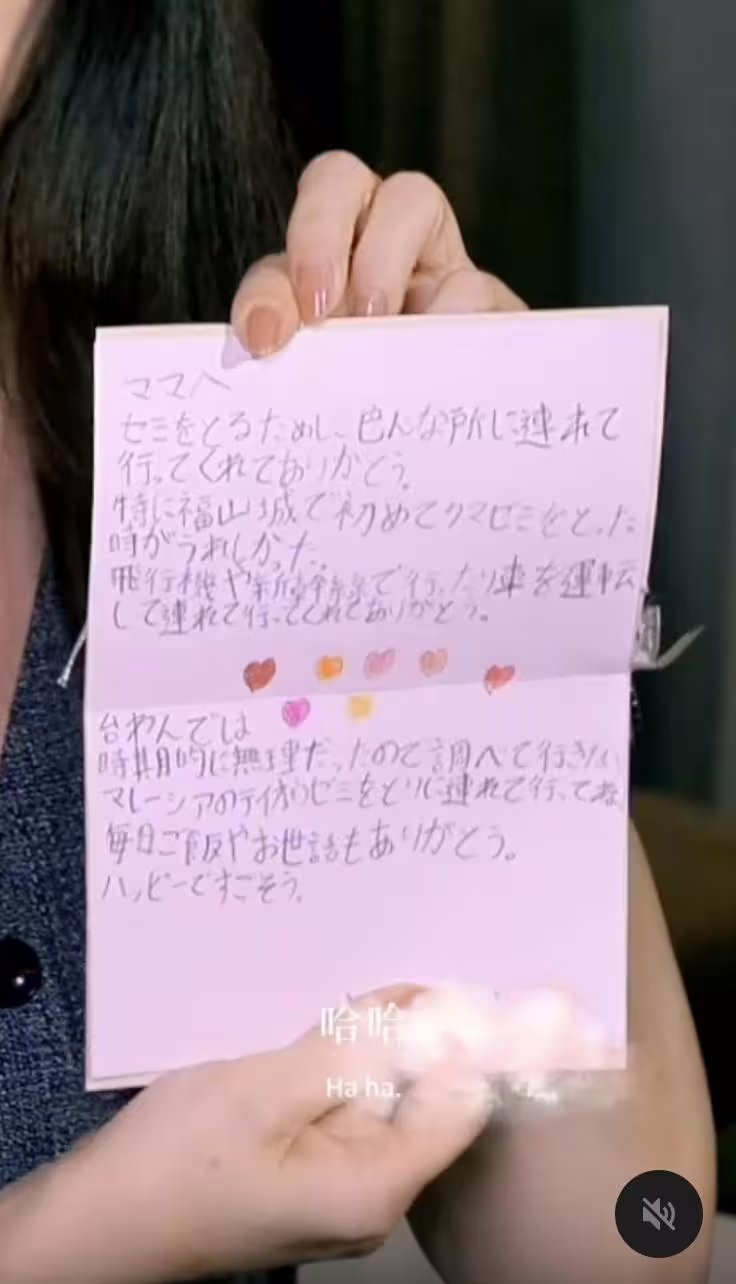 ママへ
セミをとるためし、色んな所に連れて
行ってくれてありがとう。
特に福山城で初めてクマゼミをとった
時がうれしかった。
飛行機や新幹線で行ったり車を運転
して連れて行ってくれてありがとう。
台わんでは
時期的に無理だったので調べて行きたい
マレーシアのテイオウゼミをとりに連れて行ってね
毎日ご飯やお世話もありがとう。
ハッピーですごそう。
哈哈
Ha ha.